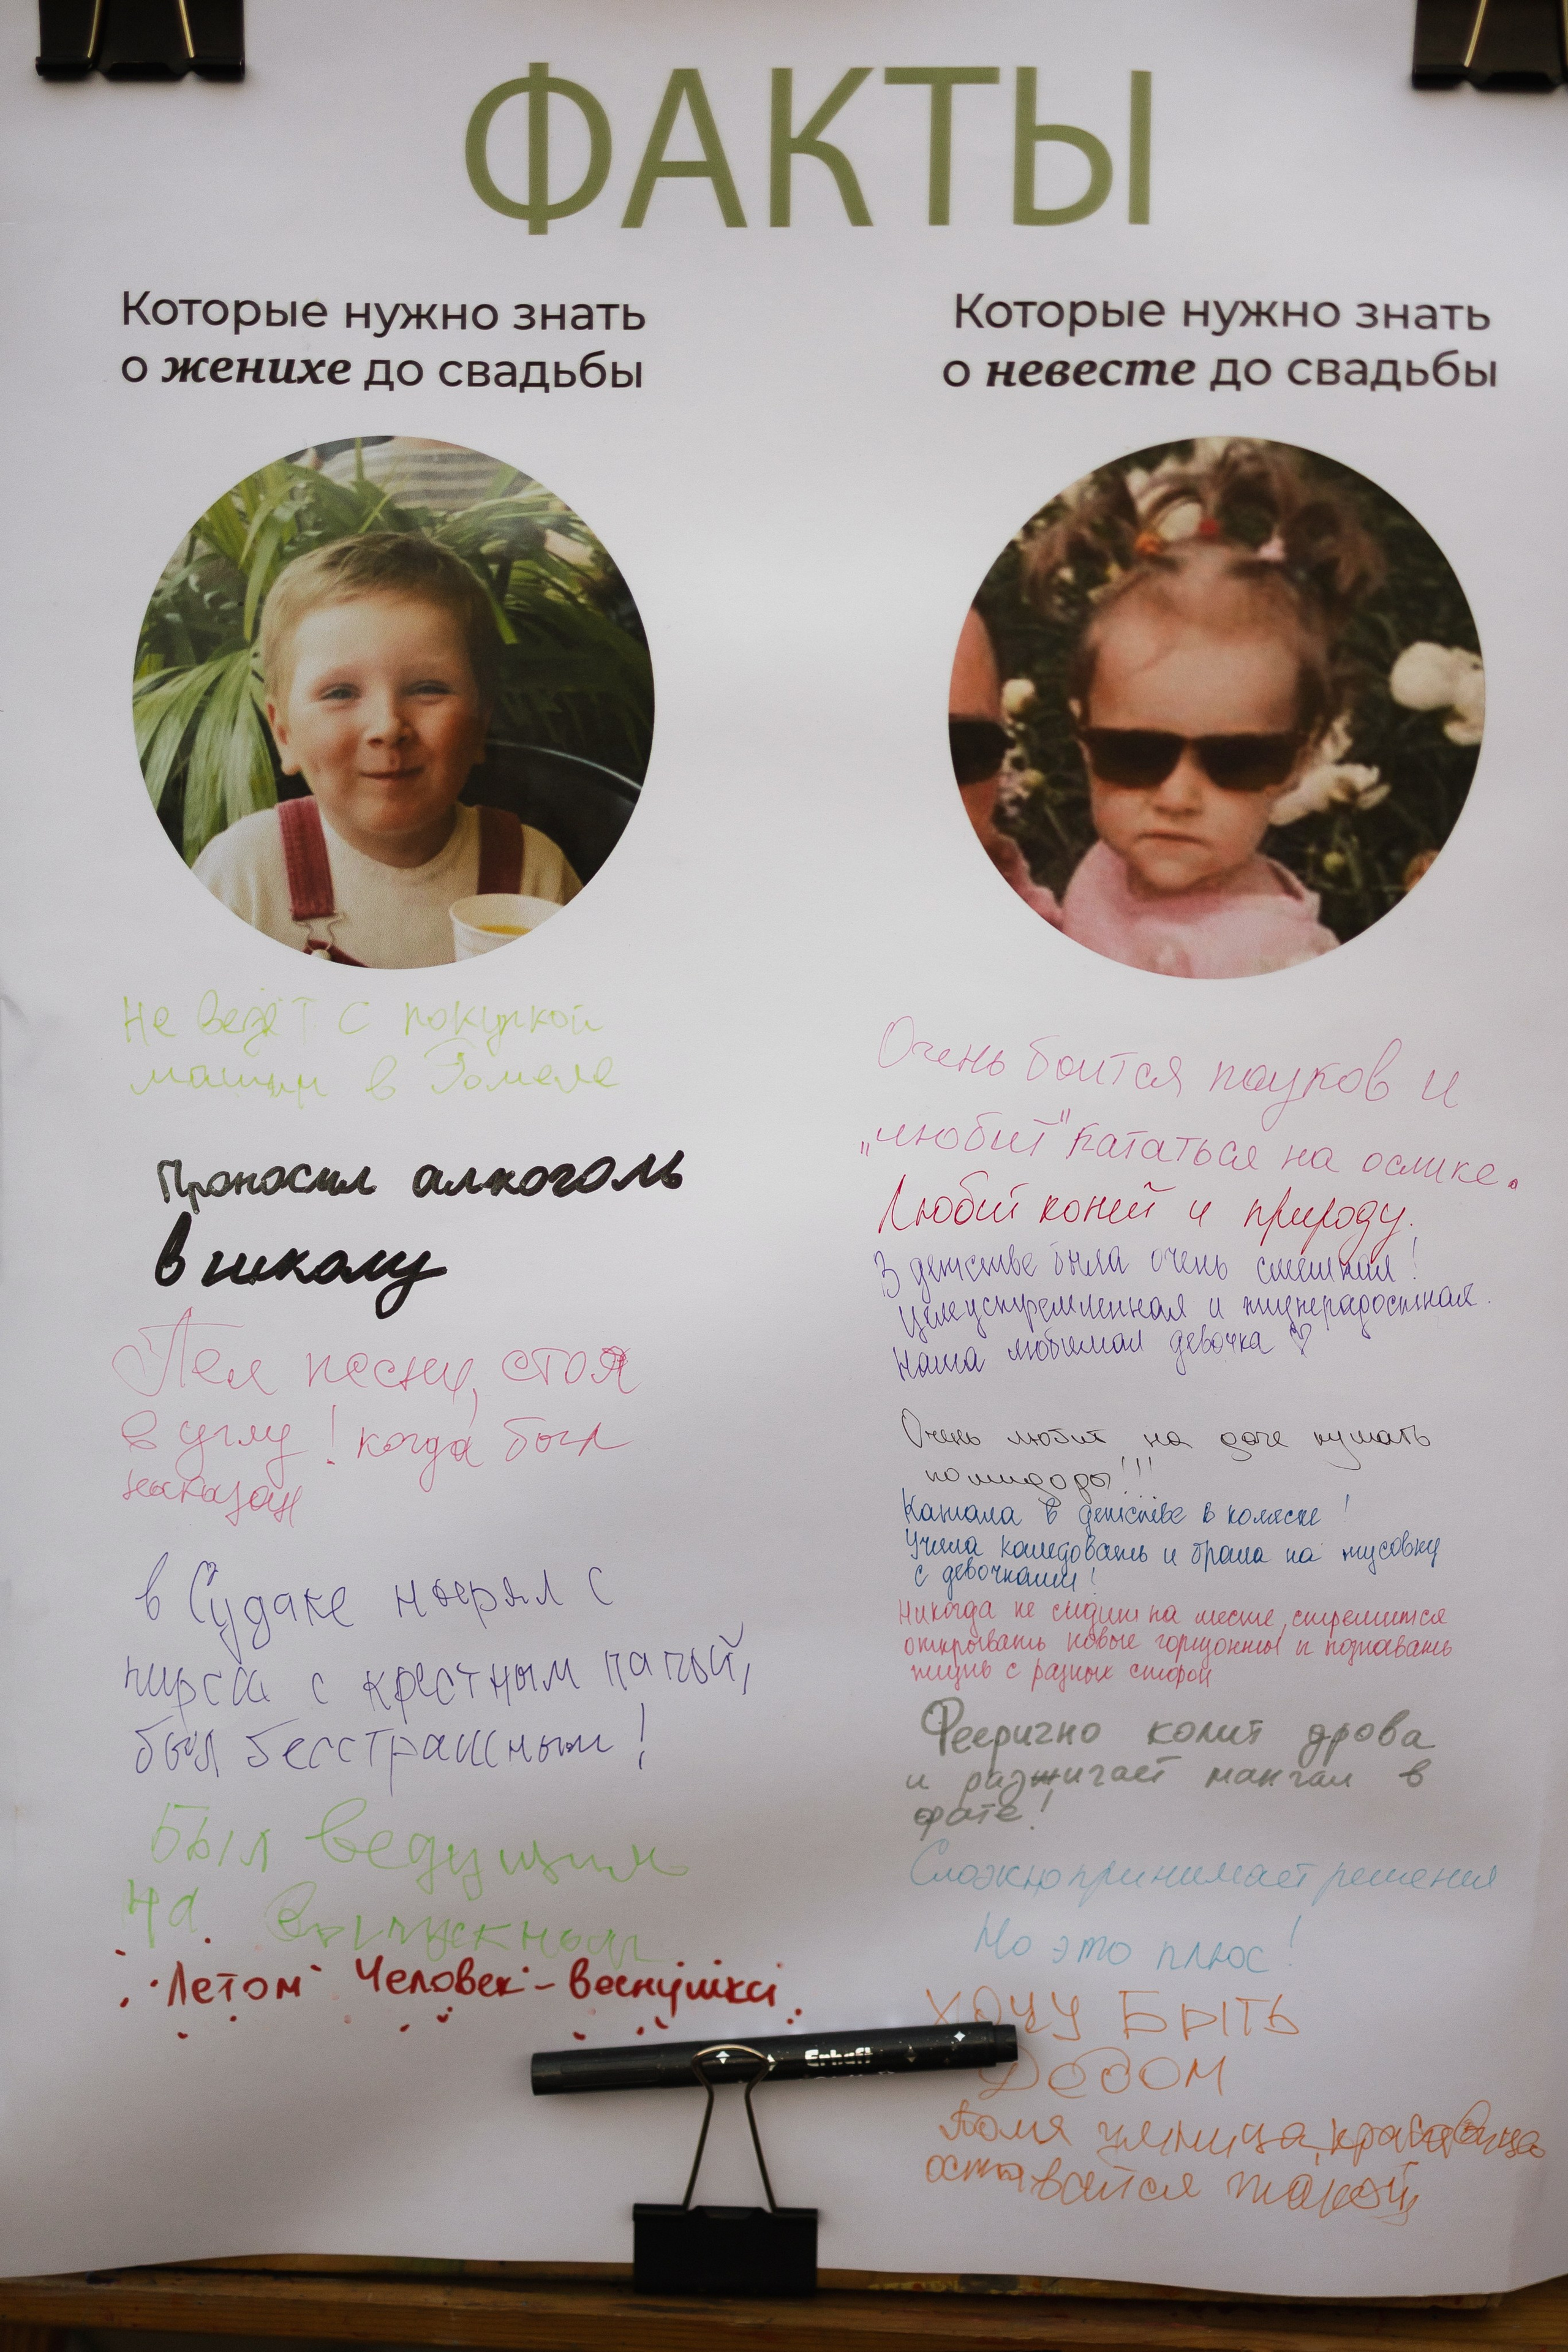 ФАКТЫ
Которые нужно знать
о женихе до свадьбы
Не везёт с покупкой
машин в Гомеле
Проносил алкоголь
в школу
Пел песни, стоя
в углу! когда был
наказан
в Судаке нырял с
пирса с крестным папой,
был бесстрашным!
Был ведущим
на выпускном
Летом Человек-веснушка
Которые нужно знать
о невесте до свадьбы
Очень боится пауков и
„любит" кататься на ослике.
Любит коней и природу.
В детстве была очень смешная!
Целеустремленная и жизнерадостная.
Наша любимая девочка ♡
Очень любит на даче кушать
помидоры!!!
Катала в детстве в коляске!
Учила колядовать и брала на тусовку
с девочками!
Никогда не сидит на месте, стремится
открывать новые горизонты и познавать
жизнь с разных сторон
Феерично колит дрова
и разжигает мангал в
фате!
Сложно принимает решения
Но это плюс!
ХОЧУ БЫТЬ
ДЕДОМ
умница, красавица
оставайся такой
Erhaft